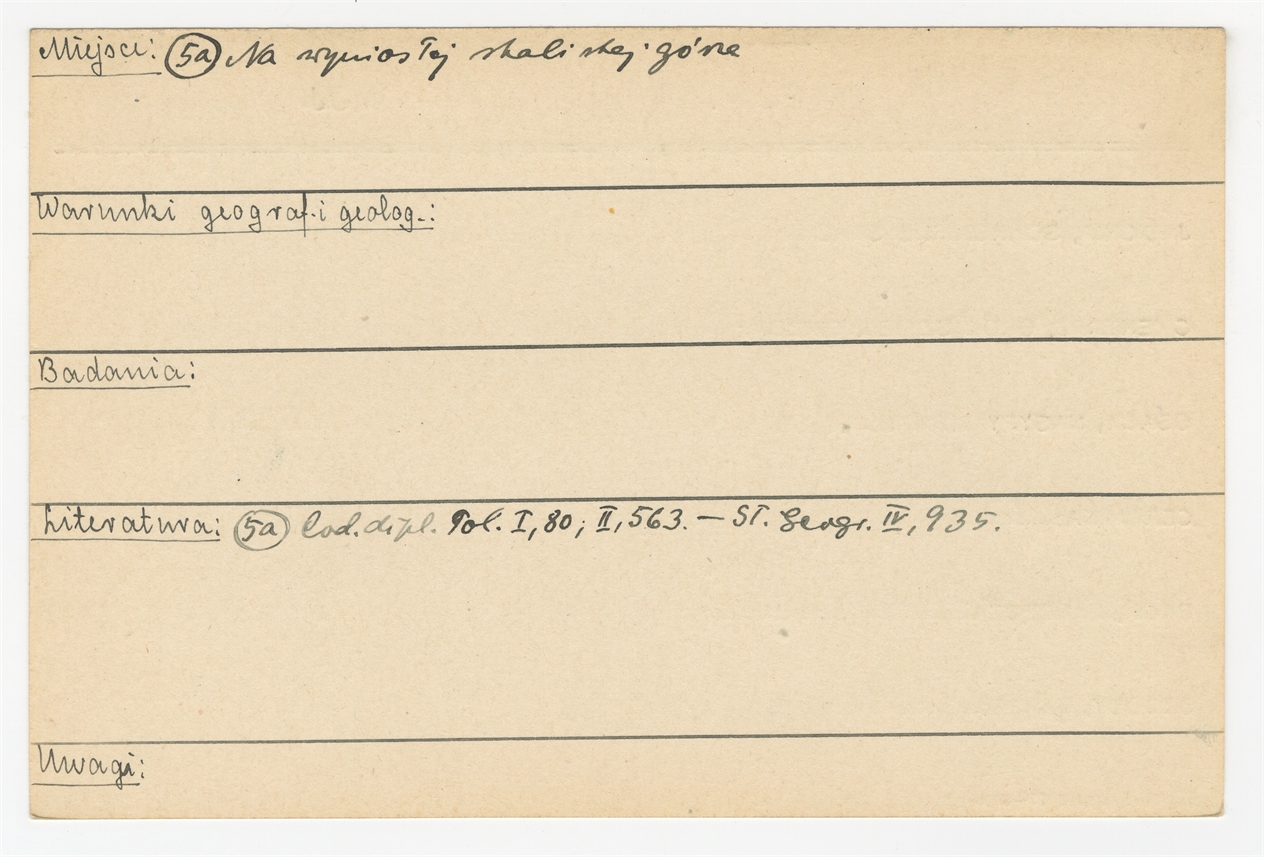 Miejsce: 5a Na wyniosłej skalistej górze
Warunki geograf. i geolog.:
Badania:
Literatura: 5a Cod. dipl. Pol. I, 80; II, 563. — Sł. Geogr. IV, 935.
Uwagi: